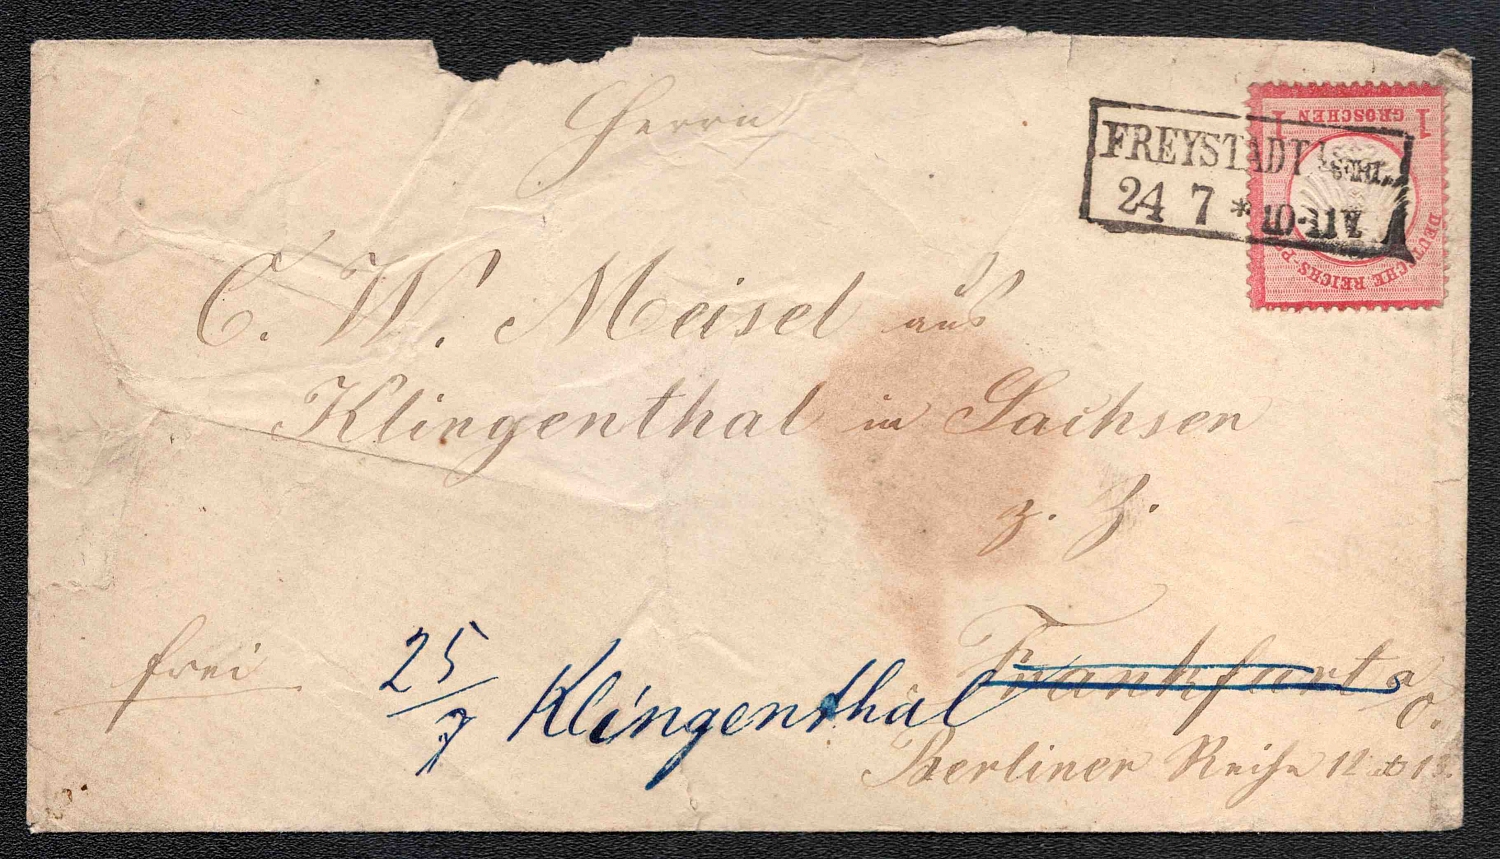 Herrn
FREYSTADT
24 7 * 10-11V
1 GROSCHEN 1
DEUTSCHE REICHS-P
C. W. Meisel aus
Klingenthal in Sachsen
z. Z.
frei
Frankfurt a/O.
25/7 Klingenthal
Berliner Reihe 12